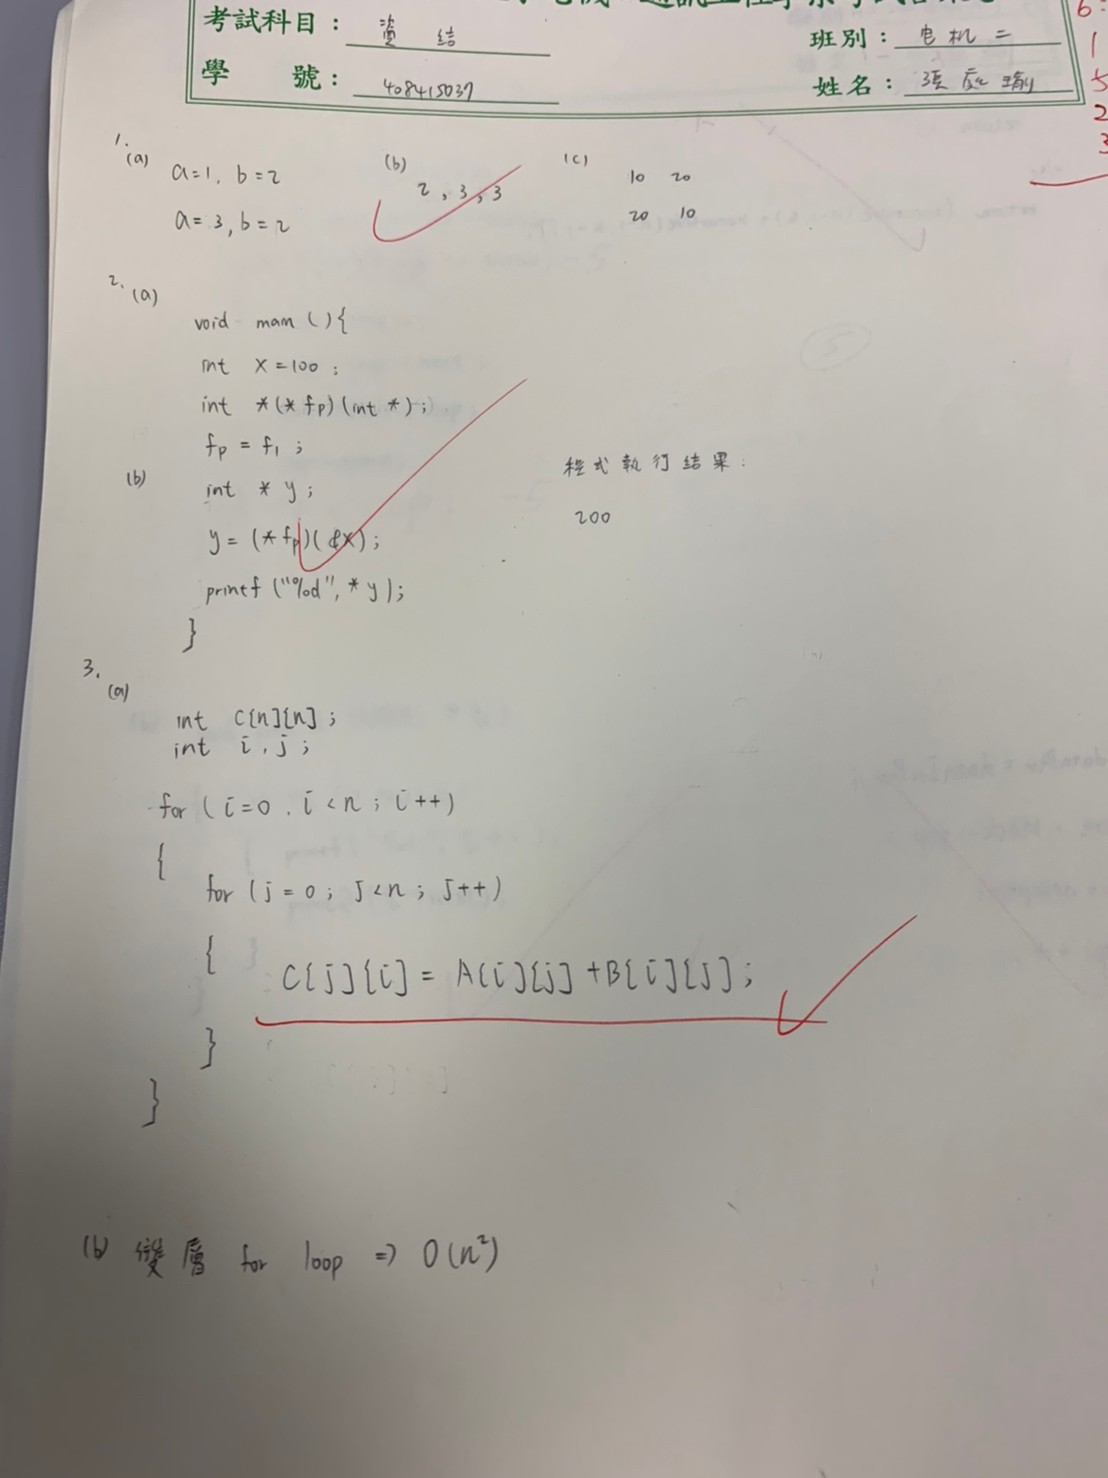 考試科目： 資 結
班別： 电机二
學 號： 408415037
姓名：
6
1
5
2
3
1.
(a) a=1, b=2
a=3, b=2
(b) 2, 3, 3
(c) 10 20
20 10
2.
(a)
void main (){
int x=100 ;
int *(* fp)(int *) ;
fp = f1 ;
(b) int * y ;
y = (* fp)(&x) ;
printf ("%d", * y);
}
程式執行結果：
200
3.
(a)
int C[n][n] ;
int i , j ;
for ( i=0 , i < n ; i ++)
{
for (j = 0 ; j < n ; j ++)
{
C[j][i] = A[i][j] + B[i][j] ;
}
}
(b) 雙層 for loop => O(n²)